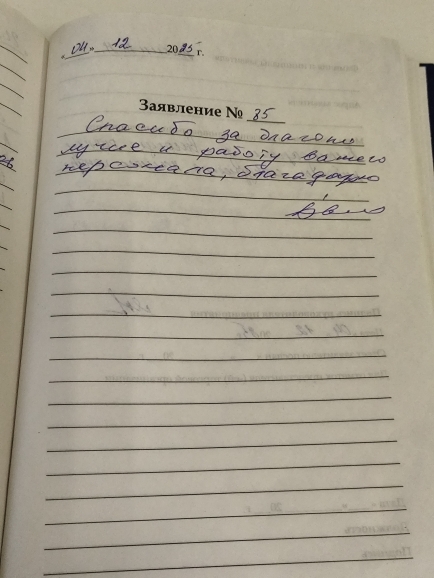 „04" 12 2025 г.
Заявление № 85
Спасибо за благопо
лучие и работу вашего
персонала, благодарю